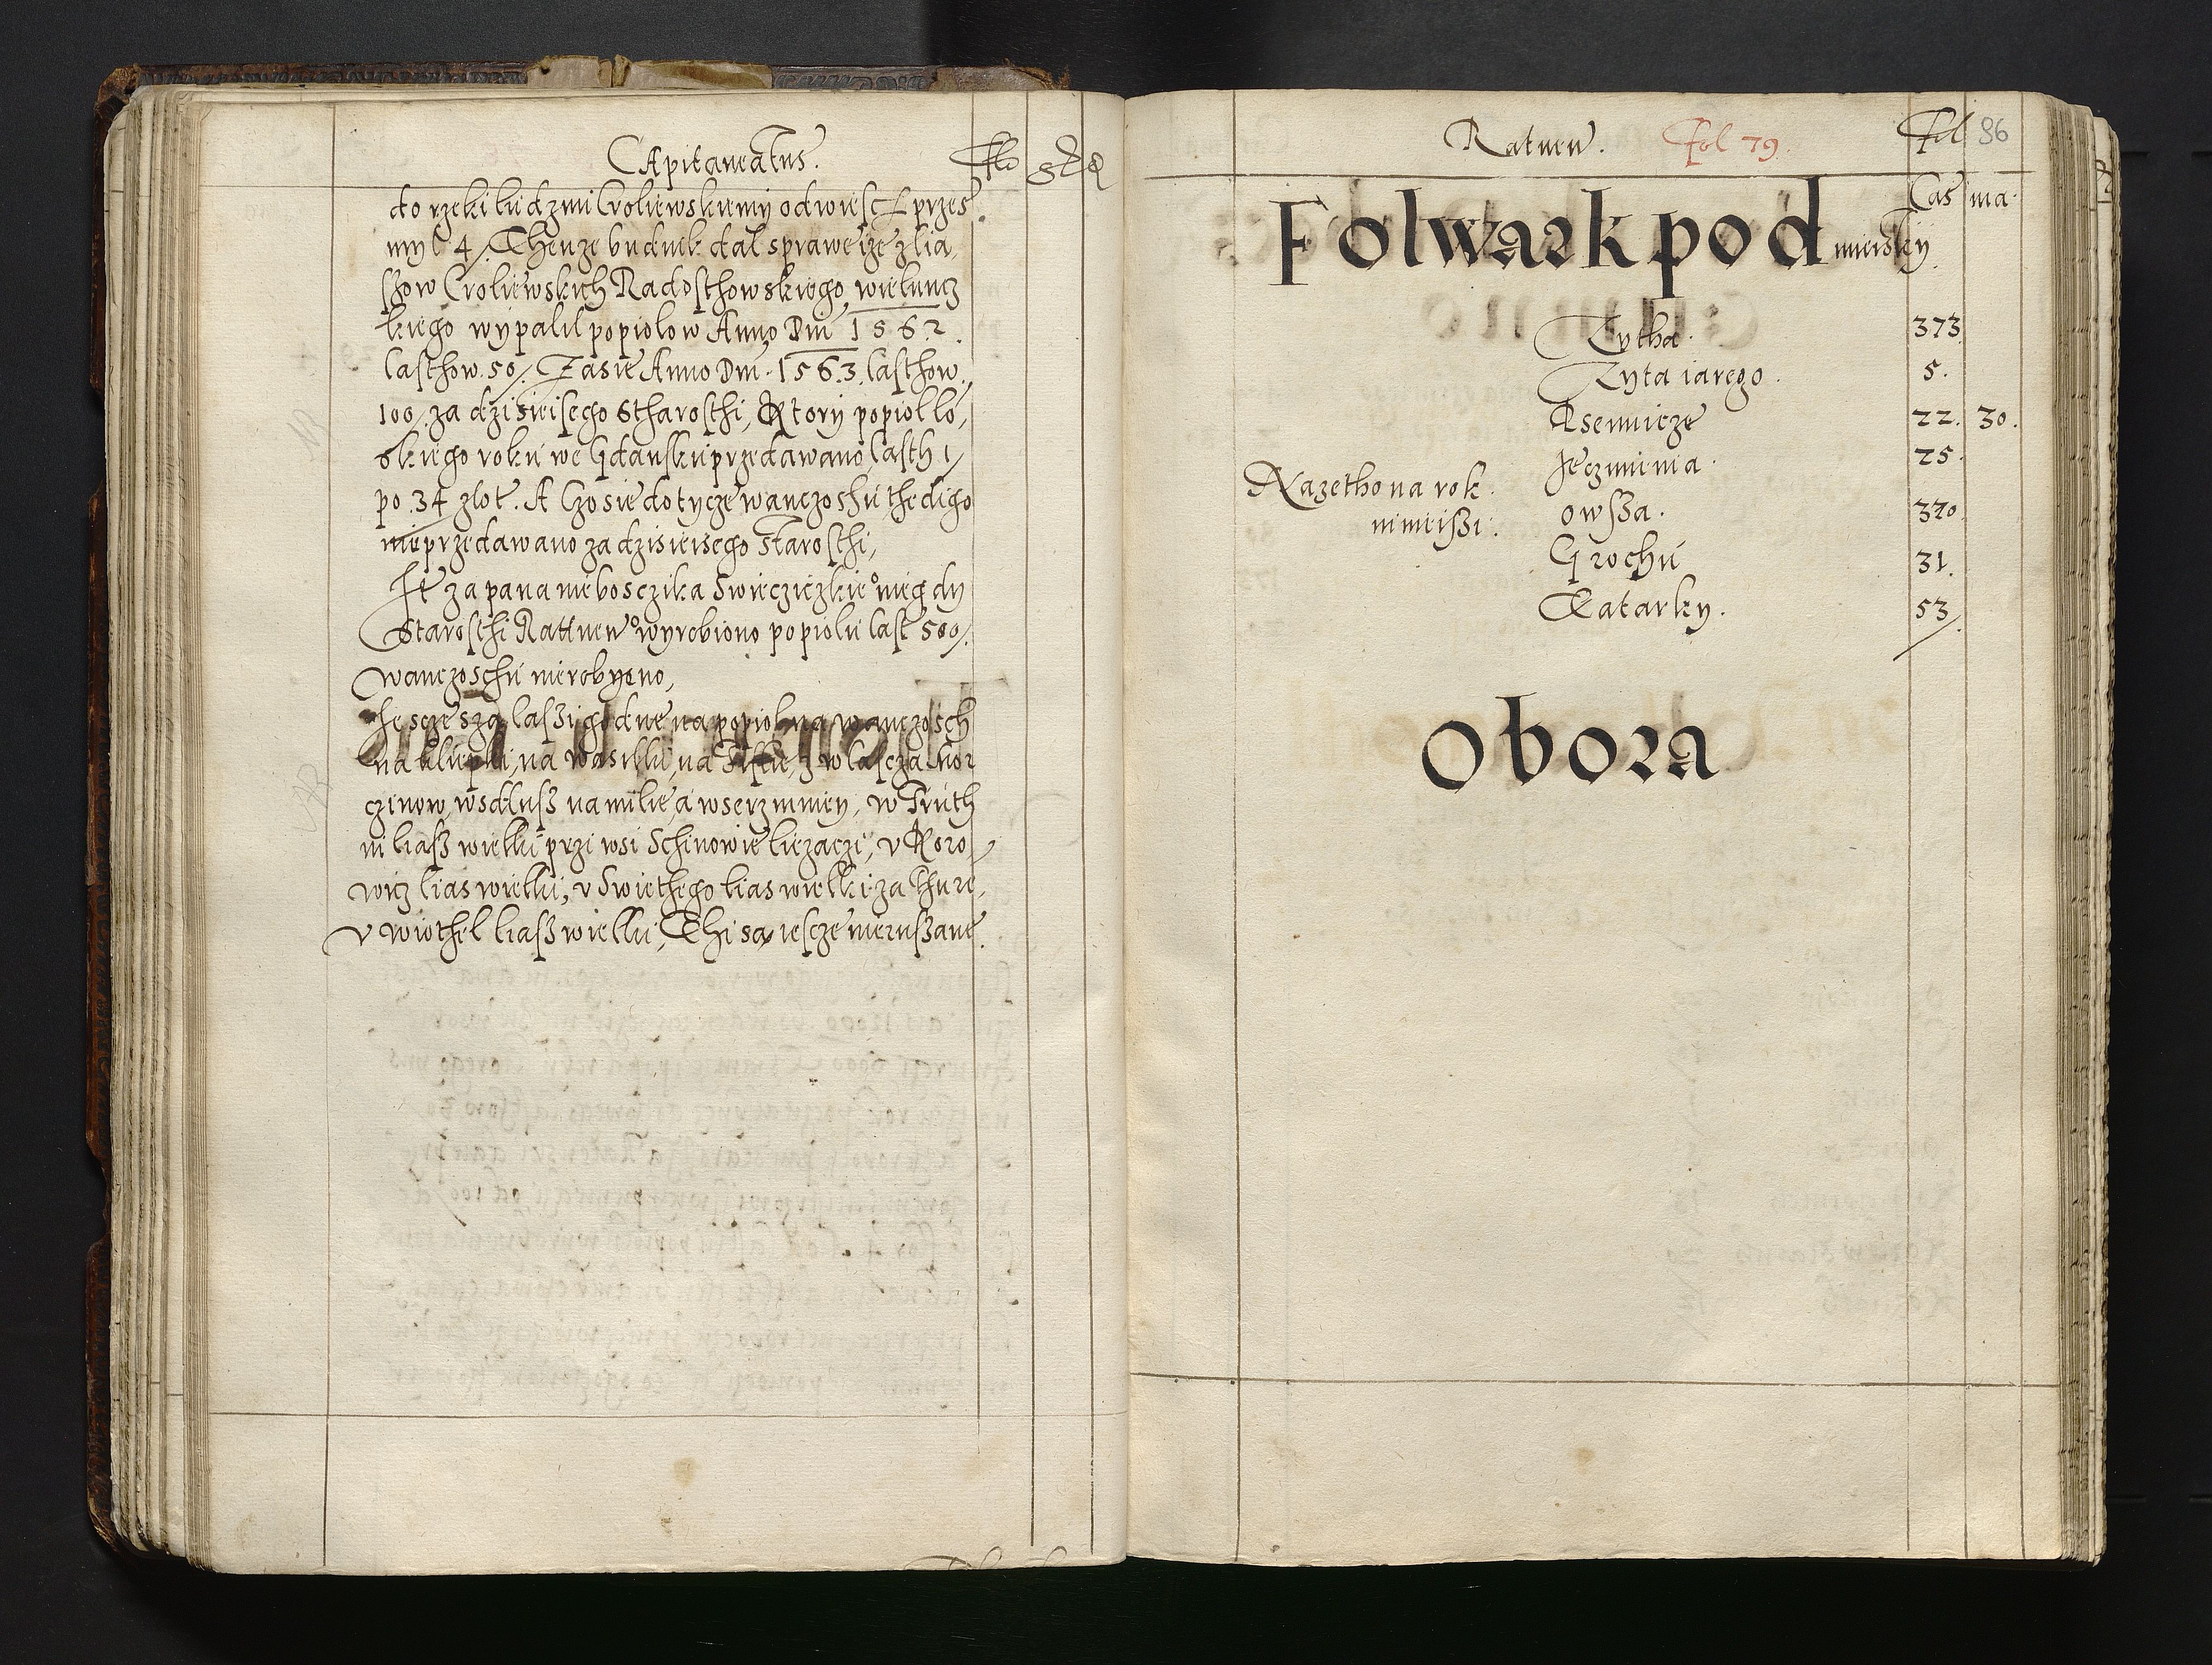 Capitaneatus. flo g d
do rzeki ludzmi Croliewskiemy odwiescz przes
myl 4. Thenze budnik dał sprawe iże z lia,
ssow Croliewskich Radosthowskiego wieluncz
kiego wypalil popiolow Anno Dni 1562.
lasthow 50/. Zasie Anno Dni. 1563. lasthow.
100/. za dzisieisego Stharosthi, Ktory popiol lo,
skiego roku we Gdansku przedawano lasth 1/
po 34 zlot. A czo sie dotycze wanczoshu thedi go
nieprzedawano za dzisieisego Starosthi,
It za pana nieboscika Swiecziczkie° niegdy
Starosthi Ratnen° wyrobiono popiolu last 500/.
wanczoschu nierobyono,
Jescze sza lassi godne na popiol, na wanczosch
na klepki, na wasilki, na zwlascza kor
czinow, wsdluss na milie, a wserz mniey, w Truth
ni liass wielki przi wsi Schinowie liezaczi, v Koro,
wicz lias wielki, v Swiethego lias wielki za Thure,
v Wiothel liass wielki, Thi sa iescze nierussane.
Ratnen. fol 79. fol 86
Cas ma.
Folwark pod mieisky.
Zytha. 373.
Zyta iarego. 5.
Psenicze 22. 30.
Jeczmienia. 25.
Nazetho na rok
ninieissi. owssa. 320.
Grochu 31.
Tatarky. 53/.
Obora